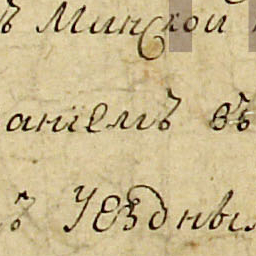 ъ Минской
аніемъ въ
ъ Уѣздны